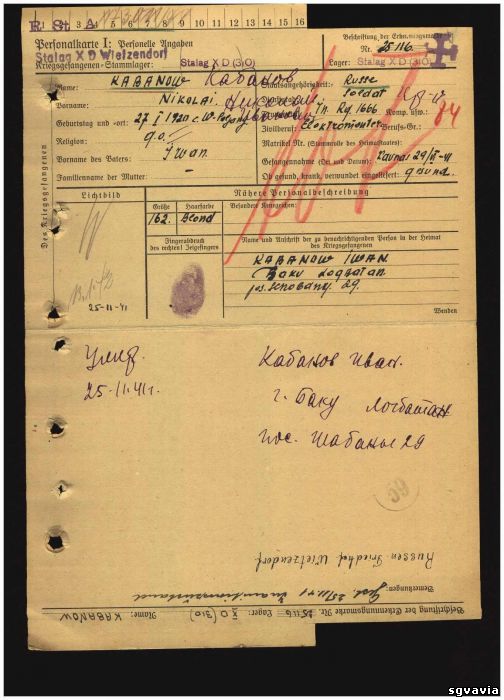 R. St. A. 3 4 5 6 7 8 9 10 11 12 13 14 15 16
Personalkarte I: Personelle Angaben
Beschriftung der Erkennungsmarke
Stalag X D Wietzendorf
Nr. 25116
Kriegsgefangenen-Stammlager: Stalag X D (310)
Lager: Stalag X D (310)
Des Kriegsgefangenen
Name: KABANOW Кабанов
Staatsangehörigkeit: Russe
Vorname: NIKOLAI Николай
Dienstgrad: Soldat
Truppenteil: In. Rg. 1666 Komp. usw.:
Geburtstag und -ort: 27. I 1920
Zivilberuf: Elektromonteur Berufs-Gr.:
Religion: g.o.
Matrikel Nr. (Stammrolle des Heimatstaates):
Vorname des Vaters: Iwan
Gefangennahme (Ort und Datum): Kaunas 29/VI-41
Familienname der Mutter:
Ob gesund, krank, verwundet eingeliefert: gesund.
Lichtbild
Nähere Personalbeschreibung
Größe Haarfarbe Besondere Kennzeichen:
162. Blond
Fingerabdruck
des rechten! Zeigefingers
Name und Anschrift der zu benachrichtigenden Person in der Heimat
des Kriegsgefangenen
KABANOW IWAN
Baku Logbatan
pos. Schobany 29.
25-11-41
Wenden
Умер.
25.II.41г.
Кабанов Иван.
г. Баку Логбатан
пос. Шабаны 29
Russen Friedhof Wietzendorf
Bemerkungen: Gest. 25/11 41
Beschriftung der Erkennungsmarke Nr. 25116 Lager: XD (310) Name: KABANOW
sgvavia